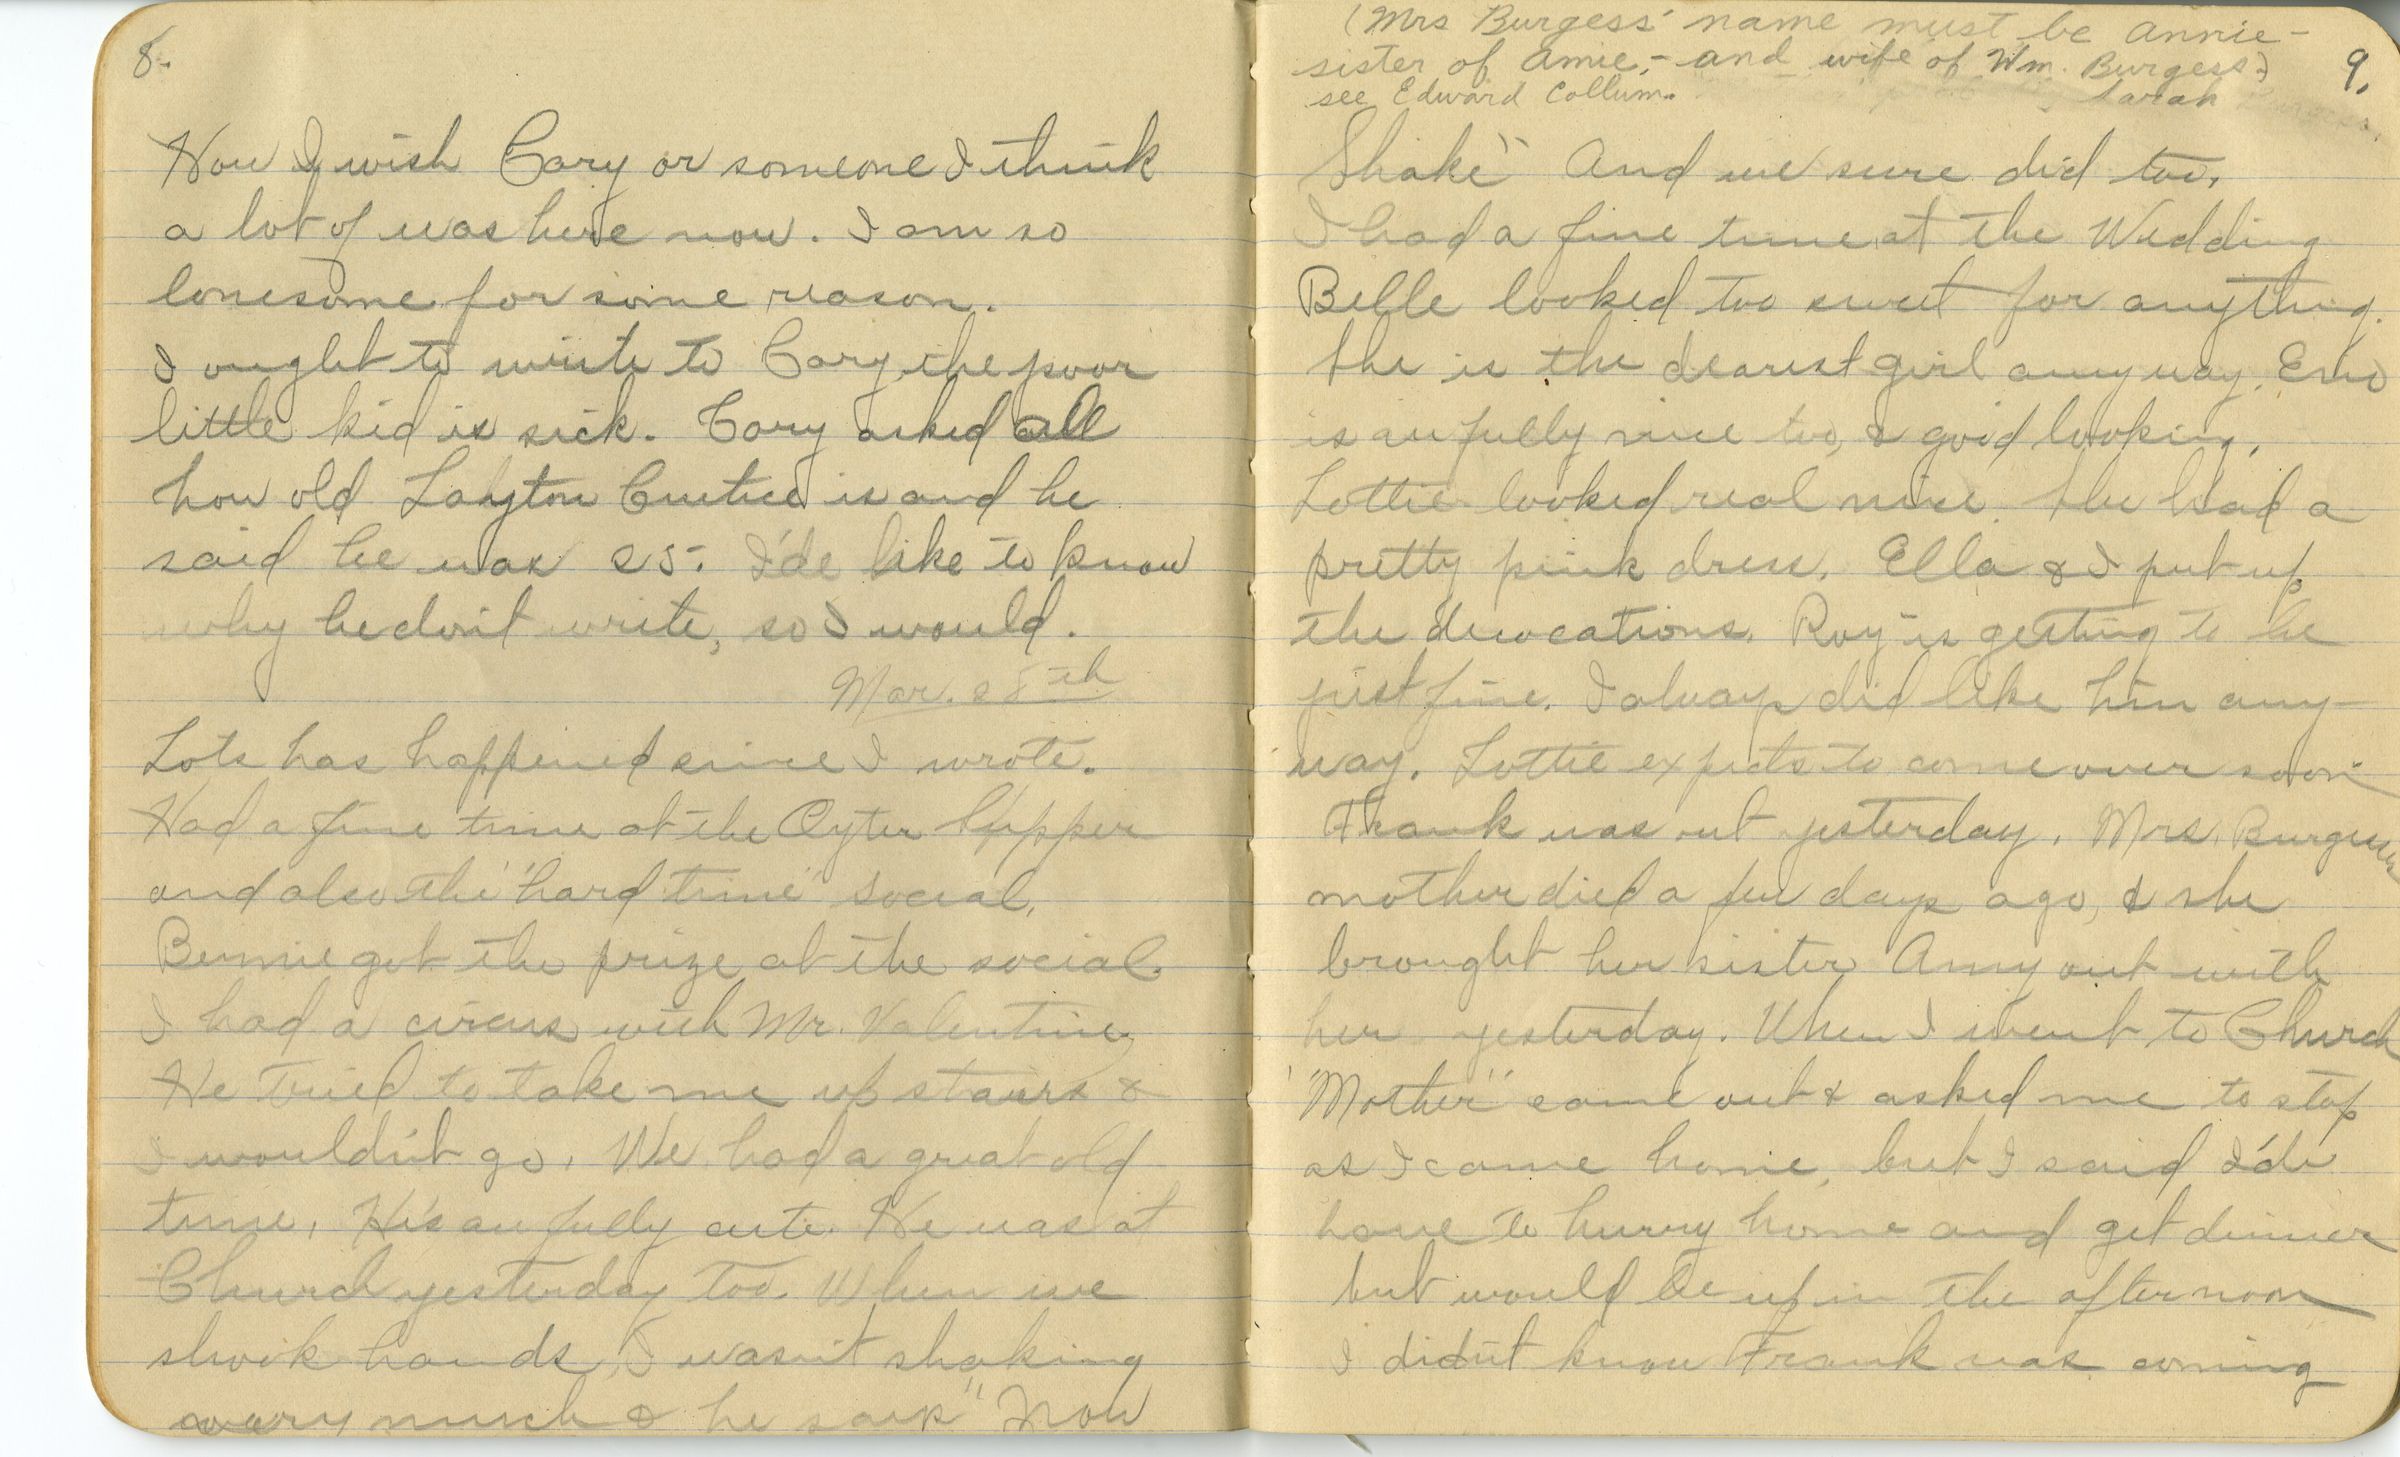 8.
How I wish Cary or someone I think
a lot of was here now. I am so
lonesome for some reason.
I ought to write to Cary, the poor
little kid is sick. Cary asked all
how old Layton Curtice is and he
said he was 25. I'de like to know
why he don't write, so I would.
Mar. 28th
Lots has happened since I wrote.
Had a fine time at the Oyter Supper
and also the "hard time" social.
Bennie got the prize at the social.
I had a circus with Mr. Valentine,
He tried to take me up stairs &
I wouldn't go. We had a great old
time. He's aufully cute. He was at
Church yesterday too. When we
shook hands, I wasn't shaking
very much & he says "Now
(Mrs Burgess' name must be Annie -
sister of Amie, - and wife of Wm. Burgess.)
see Edward Collum. Sarah
9.
Shake" And we sure did too.
I had a fine time at the Wedding
Belle looked too sweet for anything.
She is the dearest girl anyway. Eno
is aufully nice too, & good looking.
Lottie looked real nice. She had a
pretty pink dress. Ella & I put up
the decocations. Roy is getting to be
just fine. I always did like him any-
way. Lottie expects to come over soon
Frank was out yesterday. Mrs. Burgess
mother died a few days ago, & she
brought her sister Amy out with
her yesterday. When I went to Church
"Mother" came out & asked me to stop
as I came home, but I said I'de
have to hurry home and get dinner
but would be up in the afternoon
I didn't know Frank was coming